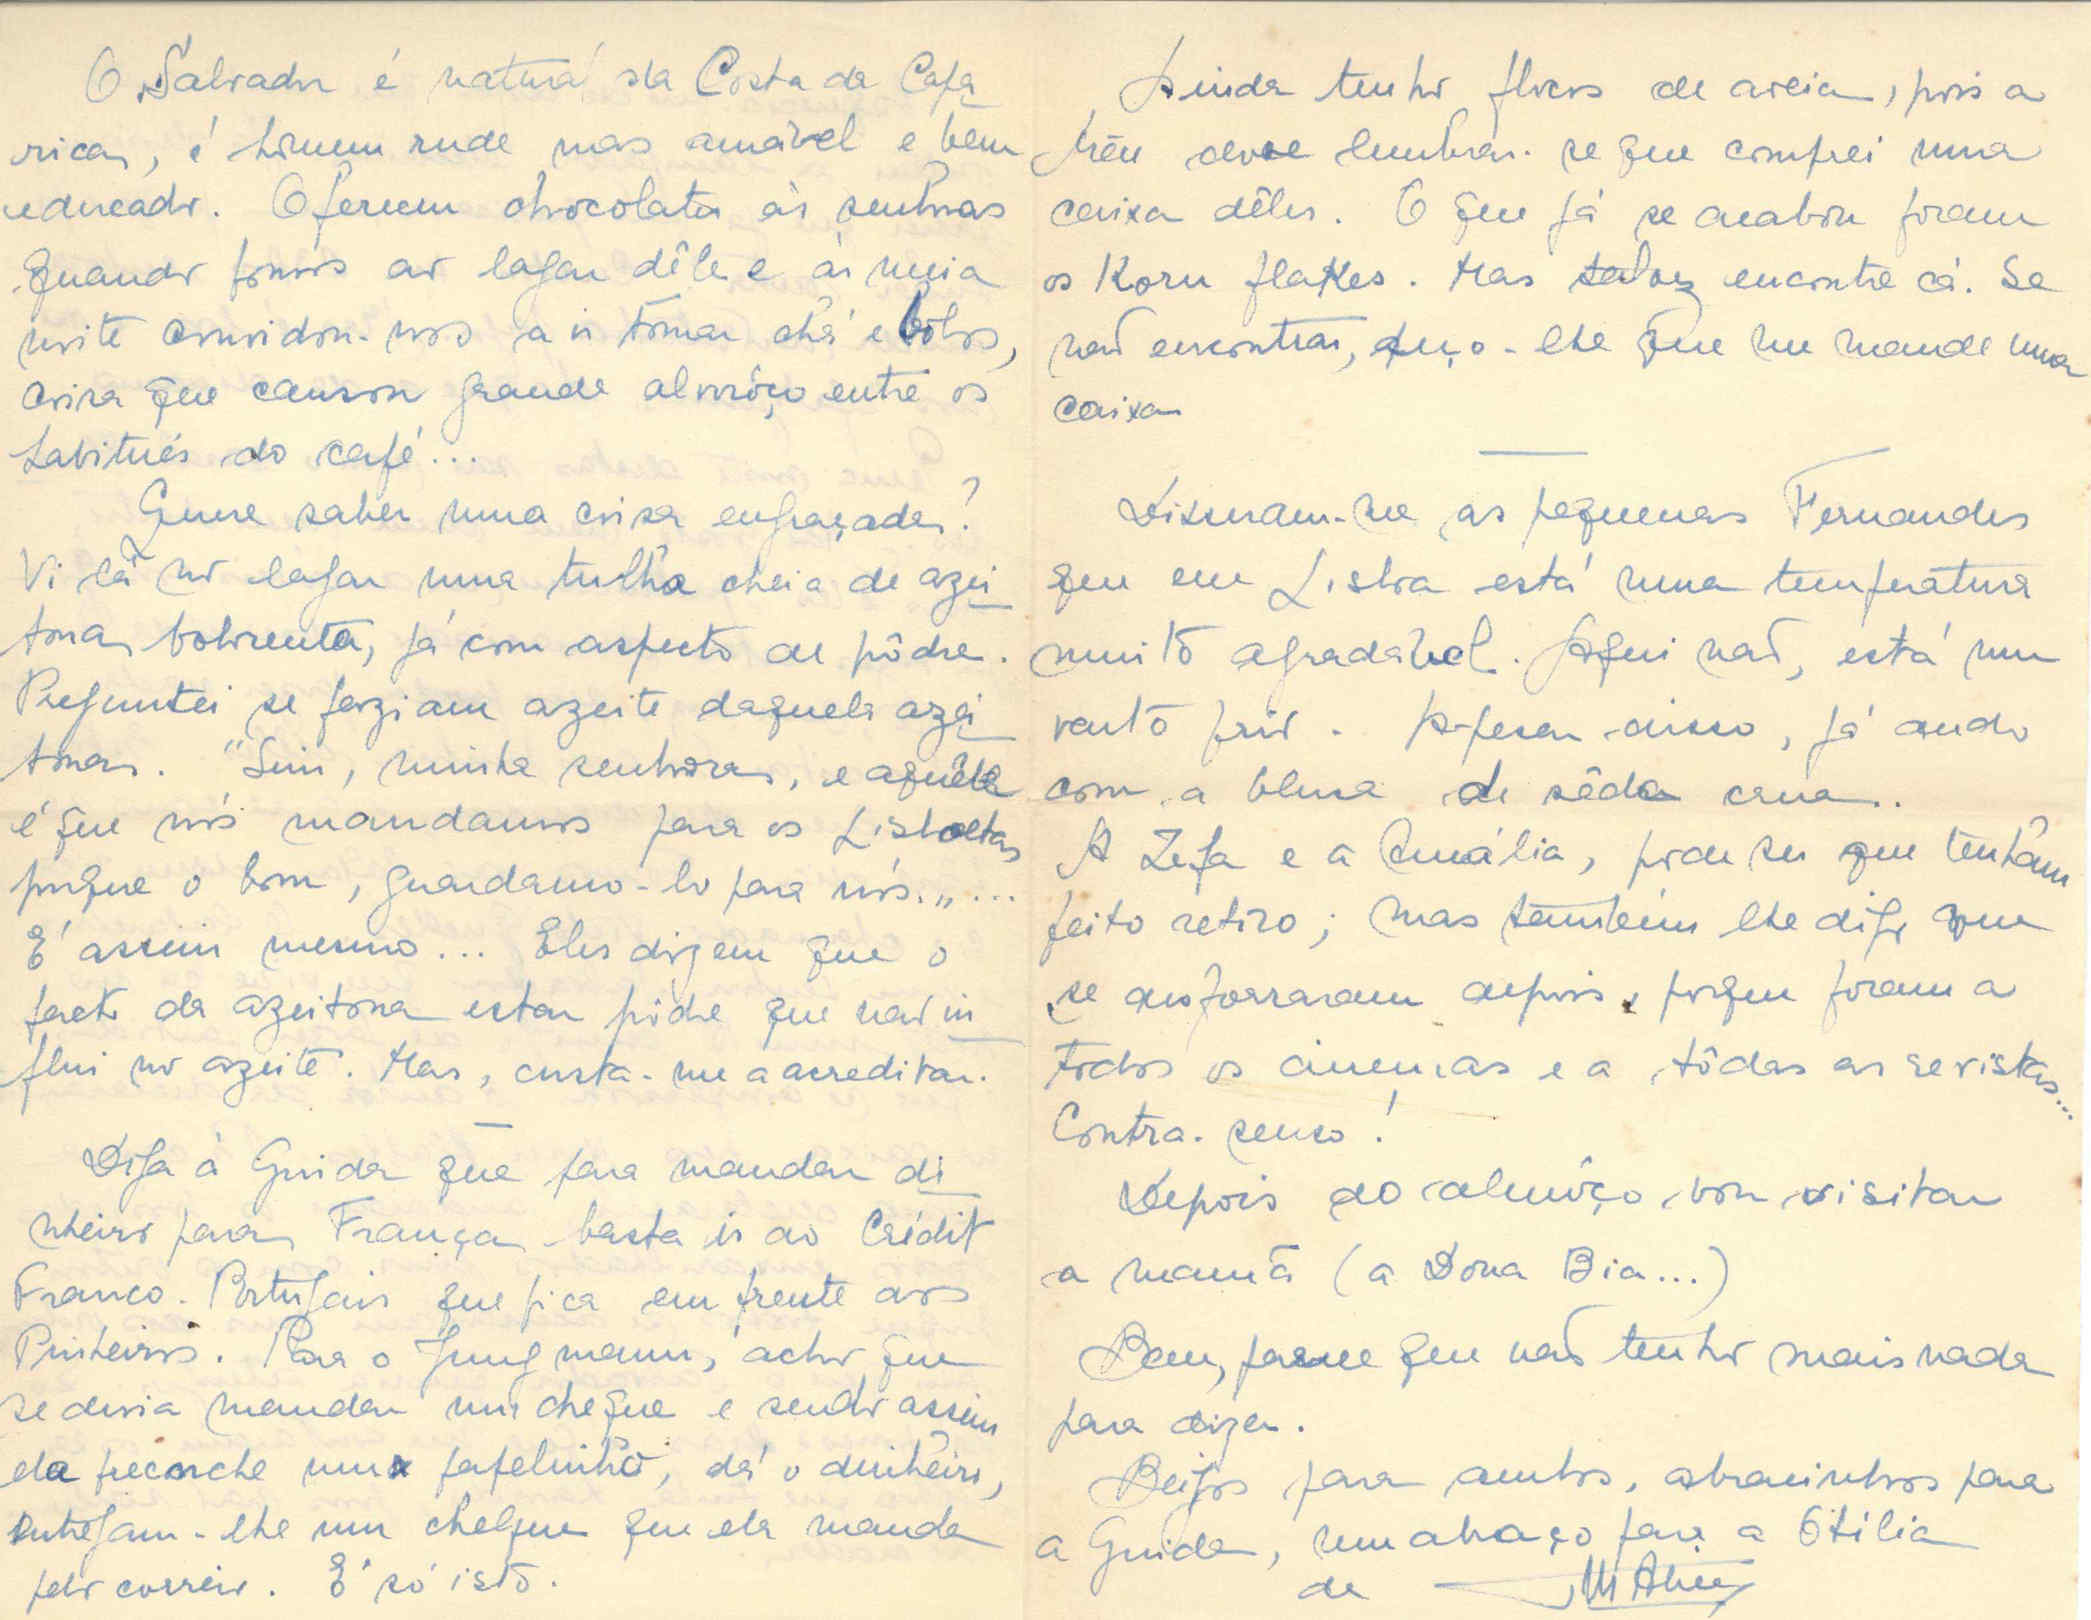 O Salvador é natural da Costa da Capa
rica, é homem rude mas amável e bem
educado. Ofereceu chocolates às senhoras
quando fomos ao lagar dêle e à meia
noite convidou-nos a ir tomar chá e bôlos,
coisa que causou grande alvorôço entre os
habitués do café...
Quere saber uma coisa engraçada?
Vi lá no lagar uma tulha cheia de azei
tona bolorenta, já com aspecto de pôdre.
Preguntei se faziam azeite daquela azei
tona. "Sim, minha senhora, e aquêle
é que nós mandamos para os Lisboetas
porque o bom, guardamo-lo para nós.„...
É assim mesmo... Eles dizem que o
facto da azeitona estar pôdre que não in
flui no azeite. Mas, custa-me a acreditar.
Diga à Guida que para mandar di
nheiro para França basta ir ao Crédit
Franco-Portugais que fica em frente aos
Pinheiros. Para o Jungmann, acho que
se devia mandar um cheque e sendo assim
ela preenche um papelinho, dá o dinheiro,
entregam-lhe um cheque que ela manda
pelo correio. É só isto.
Ainda tenho flocos de aveia, pois a
Mãe deve lembrar-se que comprei uma
caixa dêles. O que já se acabou foram
os Korn flakes. Mas talvez encontre cá. Se
não encontrar, peço-lhe que me mande uma
caixa
Disseram-me as pequenas Fernandes
que em Lisboa está uma temperatura
muito agradável. Aqui não, está um
vento frio. Apesar disso, já ando
com a blusa de sêda crua..
A Zefa e a Amália, pode ser que tenham
feito retiro; mas também lhe digo que
se desforraram depois, porque foram a
todos os cinemas e a tôdas as revistas...
Contra-senso!
Depois do almôço vou visitar
a mamã (a Dona Bia...)
Bem, parece que não tenho mais nada
para dizer.
Beijos para ambos, abracinhos para
a Guida, um abraço para a Otília
de